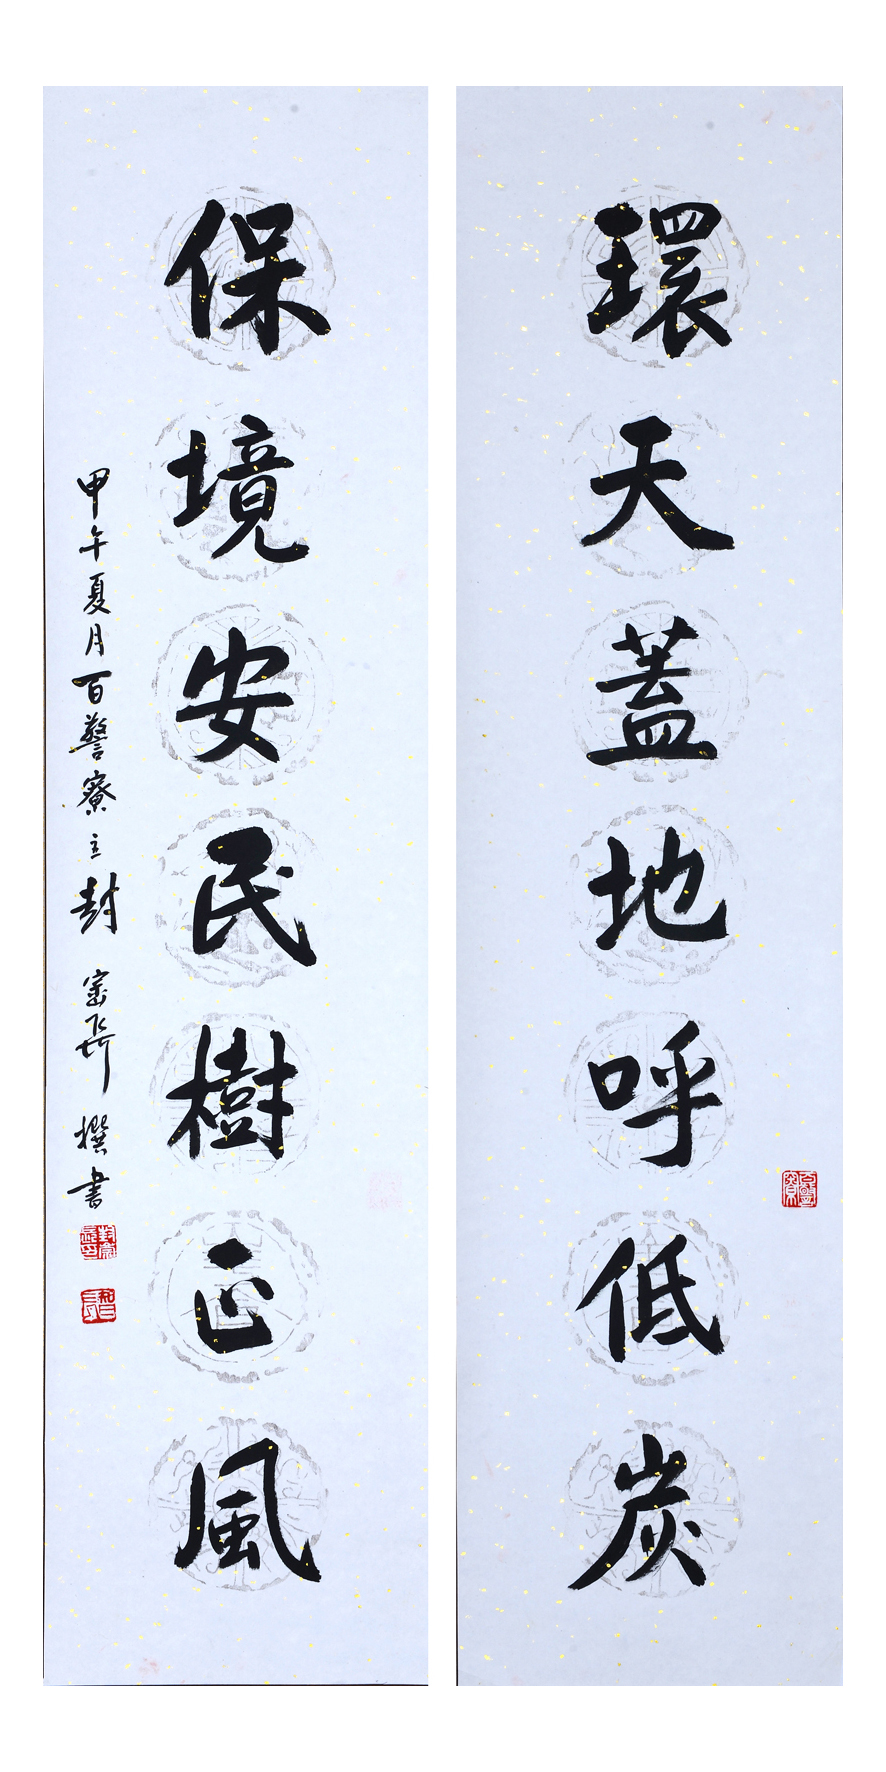 環天蓋地呼低炭
保境安民樹正風
甲午夏月百警寮主封密昇撰書